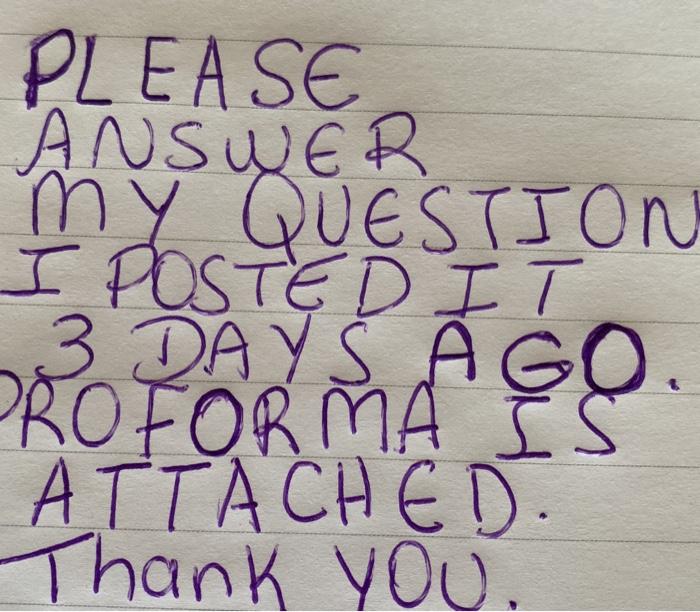 PLEASE
ANSWER
MY QUESTION
I POSTED IT
3 DAYS AGO.
PROFORMA IS
ATTACHED.
Thank YOU.